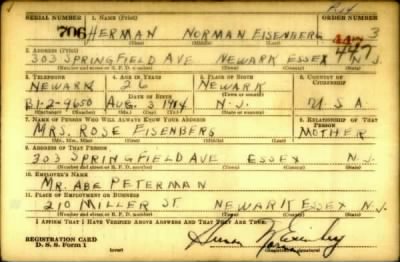 SERIAL NUMBER 1. NAME (Print) ORDER NUMBER
706 HERMAN NORMAN EISENBERG 3
(First) (Middle) (Last) 447
2. ADDRESS (Print)
303 SPRINGFIELD AVE NEWARK ESSEX N J
(Number and street or R. F. D. number) (Town) (County) (State)
3. TELEPHONE 4. AGE IN YEARS 5. PLACE OF BIRTH 6. COUNTRY OF CITIZENSHIP
NEWARK 26 NEWARK
DATE OF BIRTH (Town or county)
B1-2-9650 AUG. 3 1914 N.J. U.S.A
(Exchange) (Number) (Mo.) (Day) (Yr.) (State or country)
7. NAME OF PERSON WHO WILL ALWAYS KNOW YOUR ADDRESS 8. RELATIONSHIP OF THAT PERSON
MRS. ROSE EISENBERG MOTHER
(Mr., Mrs., Miss) (First) (Middle) (Last)
9. ADDRESS OF THAT PERSON
303 SPRINGFIELD AVE ESSEX N.J.
(Number and street or R. F. D. number) (Town) (County) (State)
10. EMPLOYER'S NAME
MR. ABE PETERMAN
11. PLACE OF EMPLOYMENT OR BUSINESS
210 MILLER ST. NEWARK ESSEX N.J.
(Number and street or R. F. D. number) (Town) (County) (State)
I AFFIRM THAT I HAVE VERIFIED ABOVE ANSWERS AND THAT THEY ARE TRUE.
REGISTRATION CARD
D. S. S. Form 1 (over) (Registrant's signature)